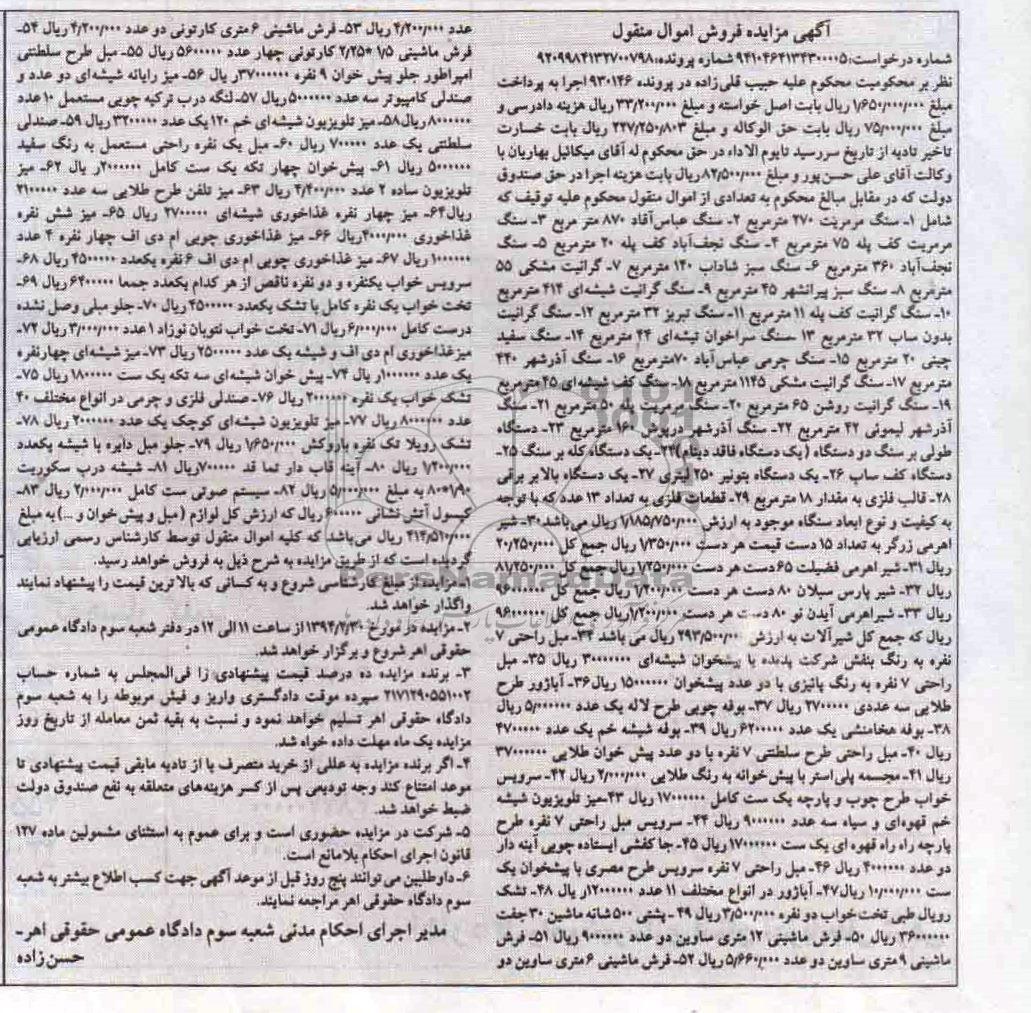 آگهی مزایده فروش اموال منقول
شماره درخواست: ۹۴۱۰۴۶۴۱۳۴۳۰۰۰۰۵ شماره پرونده: ۹۲۰۹۹۸۴۱۳۲۷۰۰۷۹۸
نظر بر محکومیت محکوم علیه حبیب قلی‌زاده در پرونده ۹۳۰۱۴۶ اجرا به پرداخت
مبلغ ۱/۶۵۰/۰۰۰/۰۰۰ ریال بابت اصل خواسته و مبلغ ۳۳/۲۰۰/۰۰۰ ریال هزینه دادرسی و
مبلغ ۷۵/۰۰۰/۰۰۰ ریال بابت حق الوکاله و مبلغ ۲۲۷/۲۵۰/۸۰۳ ریال بابت خسارت
تاخیر تادیه از تاریخ سررسید تایوم الاداء در حق محکوم له آقای میکائیل بهاریان با
وکالت آقای علی حسن‌پور و مبلغ ۸۲/۵۰۰/۰۰۰ ریال بابت هزینه اجرا در حق صندوق
دولت که در مقابل مبالغ محکوم به تعدادی از اموال منقول محکوم علیه توقیف که
شامل ۱- سنگ مرمریت ۲۷۰ مترمربع ۲- سنگ عباس‌آقاد ۸۷۰ متر مربع ۳- سنگ
مرمریت کف پله ۷۵ مترمربع ۴- سنگ نجف‌آباد کف پله ۲۰ مترمربع ۵- سنگ
نجف‌آباد ۳۶۰ مترمربع ۶- سنگ سبز شاداب ۱۴۰ مترمربع ۷- گرانیت مشکی ۵۵
مترمربع ۸- سنگ سبز پیرانشهر ۴۵ مترمربع ۹- سنگ گرانیت شیشه‌ای ۴۱۴ مترمربع
۱۰- سنگ گرانیت کف پله ۱۱ مترمربع ۱۱- سنگ تبریز ۳۲ مترمربع ۱۲- سنگ گرانیت
بدون ساب ۳۲ مترمربع ۱۳ -سنگ سراخوان تیشه‌ای ۴۴ مترمربع ۱۴- سنگ سفید
چینی ۲۰ مترمربع ۱۵- سنگ چرمی عباس‌آباد ۷۰مترمربع ۱۶- سنگ آذرشهر ۴۴۰
مترمربع ۱۷- سنگ گرانیت مشکی ۱۱۴۵ مترمربع ۱۸- سنگ کف شیشه‌ای ۴۵ مترمربع
۱۹- سنگ گرانیت روشن ۶۵ مترمربع ۲۰- سنگ مرمریت ۵۰ مترمربع ۲۱- سنگ
آذرشهر لیمونی ۴۲ مترمربع ۲۲- سنگ آذرشهر دریوش ۱۶۰ مترمربع ۲۳- دستگاه
طولی بر سنگ دو دستگاه (یک دستگاه فاقد دینام)۲۴- یک دستگاه کله بر سنگ ۲۵-
دستگاه کف ساب ۲۶- یک دستگاه بتونیر ۲۵۰ لیتری ۲۷- یک دستگاه بالابر برقی
۲۸- قالب فلزی به مقدار ۱۸ مترمربع ۲۹- قطعات فلزی به تعداد ۱۳ عدد که با توجه
به کیفیت و نوع ابعاد سنگاه موجود به ارزش ۱/۱۸۵/۷۵۰/۰۰۰ ریال می‌باشد ۳۰- شیر
اهرمی زرگر به تعداد ۱۵ دست قیمت هر دست ۱/۳۵۰/۰۰۰ ریال جمع کل ۲۰/۲۵۰/۰۰۰
ریال ۳۱- شیر اهرمی فضیلت ۶۵ دست هر دست ۱/۲۵۰/۰۰۰ ریال جمع کل ۸۱/۲۵۰/۰۰۰
ریال ۳۲- شیر پارس سبلان ۸۰ دست هر دست ۱/۲۰۰/۰۰۰ ریال جمع کل ۹۶۰۰۰۰۰۰
ریال ۳۳- شیراهرمی آیدن نو ۸۰ دست هر دست ۱/۲۰۰/۰۰۰ ریال جمع کل ۹۶۰۰۰۰۰۰
ریال که جمع کل شیرآلات به ارزش ۲۹۳/۵۰۰/۰۰۰ ریال می باشد ۳۴- مبل راحتی ۷
نفره به رنگ بنفش شرکت پدیده با پیشخوان شیشه‌ای ۳۰۰۰۰۰۰۰ ریال ۳۵- مبل
راحتی ۷ نفره به رنگ پائیزی با دو عدد پیشخوان ۱۵۰۰۰۰۰۰ ریال ۳۶- آباژور طرح
طلایی سه عددی ۲۷۰۰۰۰۰ ریال ۳۷- بوفه چوبی طرح لاله یک عدد ۵/۰۰۰/۰۰۰ ریال
۳۸- بوفه هخامنشی یک عدد ۶۲۰۰۰۰۰ ریال ۳۹- بوفه شیشه خم یک عدد ۴۷۰۰۰۰۰
ریال ۴۰- مبل راحتی طرح سلطنتی ۷ نفره با دو عدد پیش خوان طلایی ۳۷۰۰۰۰۰۰
ریال ۴۱- مجسمه پلی‌استر با پیش خوانه به رنگ طلایی ۲/۰۰۰/۰۰۰ ریال ۴۲- سرویس
خواب طرح چوب و پارچه یک ست کامل ۱۷۰۰۰۰۰۰ ریال ۴۳-میز تلویزیون شیشه
خم قهوه‌ای و سیاه سه عدد ۹۰۰۰۰۰۰ ریال ۴۴- سرویس مبل راحتی ۷ نفره طرح
پارچه راه راه قهوه ای یک ست ۱۷۰۰۰۰۰۰ ریال ۴۵- جا کفشی ایستاده چوبی آینه دار
دو عدد ۴۰۰۰۰۰۰ ریال ۴۶- مبل راحتی ۷ نفره سرویس طرح مصری با پیشخوان یک
ست ۱۰/۰۰۰/۰۰۰ ریال ۴۷- آباژور در انواع مختلف ۱۱ عدد ۱۲۰۰۰۰۰۰ر یال ۴۸- تشک
رویال طبی تخت خواب دو نفره ۳/۵۰۰/۰۰۰ ریال ۴۹ - پشتی ۵۰۰ شانه ماشین ۳۰ جفت
۳۶۰۰۰۰۰۰ ریال ۵۰- فرش ماشینی ۱۲ متری ساوین دو عدد ۹۰۰۰۰۰۰ ریال ۵۱- فرش
ماشینی ۹ متری ساوین دو عدد ۵/۶۶۰/۰۰۰ ریال ۵۲- فرش ماشینی ۶ متری ساوین دو
عدد ۴/۲۰۰/۰۰۰ ریال ۵۳- فرش ماشینی ۶ متری کارتونی دو عدد ۴/۲۰۰/۰۰۰ ریال ۵۴-
فرش ماشینی ۱/۵ *۲/۲۵ کارتونی چهار عدد ۵۶۰۰۰۰۰ ریال ۵۵- مبل طرح سلطنتی
امپراطور جلو پیش خوان ۹ نفره ۳۷۰۰۰۰۰۰ر یال ۵۶- میز رایانه شیشه‌ای دو عدد و
صندلی کامپیوتر سه عدد ۵۰۰۰۰۰۰ ریال ۵۷- لنگه درب ترکیه چوبی مستعمل ۱۰ عدد
۸۰۰۰۰۰۰ ریال ۵۸- میز تلویزیون شیشه‌ای خم ۱۲۰ یک عدد ۳۲۰۰۰۰۰ ریال ۵۹- صندلی
سلطنتی یک عدد ۷۰۰۰۰۰ ریال ۶۰- مبل یک نفره راحتی مستعمل به رنگ سفید
۵۰۰۰۰۰ ریال ۶۱- پیش‌خوان چهار تکه یک ست کامل ۲۰۰۰۰۰۰ر یال ۶۲- میز
تلویزیون ساده ۲ عدد ۴/۴۰۰/۰۰۰ ریال ۶۳- میز تلفن طرح طلایی سه عدد ۲۱۰۰۰۰۰
ریال ۶۴- میز چهار نفره غذاخوری شیشه‌ای ۲۷۰۰۰۰۰ ریال ۶۵- میز شش نفره
غذاخوری ۴۰۰۰/۰۰۰ ریال ۶۶- میز غذاخوری چوبی ام دی اف چهار نفره ۴ عدد
۱۰۰۰۰۰۰۰ ریال ۶۷- میز غذاخوری چوبی ام دی اف ۶ نفره یکعدد ۴۵۰۰۰۰۰ ریال ۶۸-
سرویس خواب یکنفره و دو نفره ناقص از هر کدام یکعدد جمعا ۶۴۰۰۰۰۰ ریال ۶۹-
تخت خواب یک نفره کامل با تشک یکعدد ۴۵۰۰۰۰۰ ریال ۷۰- جلو مبلی وصل نشده
درست کامل ۶/۰۰۰/۰۰۰ ریال ۷۱- تخت خواب نتوبان نوزاد ۱ عدد ۳/۰۰۰/۰۰۰ ریال ۷۲-
میز غذاخوری ام دی اف و شیشه یک عدد ۲۵۰۰۰۰۰ ریال ۷۳- میز شیشه‌ای چهارنفره
یک عدد ۱۰۰۰۰۰۰ر یال ۷۴- پیش خوان شیشه‌ای سه تکه یک ست ۱۸۰۰۰۰۰ ریال ۷۵-
تشک خواب یک نفره ۲۰۰۰۰۰۰ ریال ۷۶- صندلی فلزی و چرمی در انواع مختلف ۴۰
عدد ۸۰۰۰۰۰۰ ریال ۷۷- میز تلویزیون شیشه‌ای کوچک یک عدد ۲۰۰۰۰۰۰ ریال ۷۸-
تشک رویلا تک نفره باروکش ۱/۶۵۰/۰۰۰ ریال ۷۹- جلو مبل دایره با شیشه یکعدد
۱/۲۰۰/۰۰۰ ریال ۸۰- آینه قاب دار تما قد ۷۰۰۰۰۰ریال ۸۱- شیشه درب سکوریت
۸۰*۱/۹۰ به مبلغ ۵/۰۰۰/۰۰۰ ریال ۸۲- سیستم صوتی ست کامل ۲/۰۰۰/۰۰۰ ریال ۸۳-
کپسول آتش نشانی ۶۰۰۰۰۰ ریال که ارزش کل لوازم (مبل و پیش خوان و ...) به مبلغ
۴۱۴/۵۱۰/۰۰۰ ریال می‌باشد که کلیه اموال منقول توسط کارشناس رسمی ارزیابی
گردیده است که از طریق مزایده به شرح ذیل به فروش خواهد رسید.
۱- مزایده از مبلغ کارشناسی شروع و به کسانی که بالاترین قیمت را پیشنهاد نمایند
واگذار خواهد شد.
۲- مزایده در مورخ ۱۳۹۴/۲/۳۰ از ساعت ۱۱ الی ۱۲ در دفتر شعبه سوم دادگاه عمومی
حقوقی اهر شروع و برگزار خواهد شد.
۳- برنده مزایده ده درصد قیمت پیشنهادی را فی‌المجلس به شماره حساب
۲۱۷۱۲۹۰۵۵۱۰۰۲ سپرده موقت دادگستری واریز و فیش مربوطه را به شعبه سوم
دادگاه حقوقی اهر تسلیم خواهد نمود و نسبت به بقیه ثمن معامله از تاریخ روز
مزایده یک ماه مهلت داده خواه شد.
۴- اگر برنده مزایده به عللی از خرید متصرف یا از تادیه مابقی قیمت پیشنهادی تا
موعد امتناع کند وجه تودیعی پس از کسر هزینه‌های متعلقه به نفع صندوق دولت
ضبط خواهد شد.
۵- شرکت در مزایده حضوری است و برای عموم به استثنای مشمولین ماده ۱۲۷
قانون اجرای احکام بلامانع است.
۶- داوطلبین می توانند پنج روز قبل از موعد آگهی جهت کسب اطلاع بیشتر به شعبه
سوم دادگاه حقوقی اهر مراجعه نمایند.
مدیر اجرای احکام مدنی شعبه سوم دادگاه عمومی حقوقی اهر-
حسن‌زاده